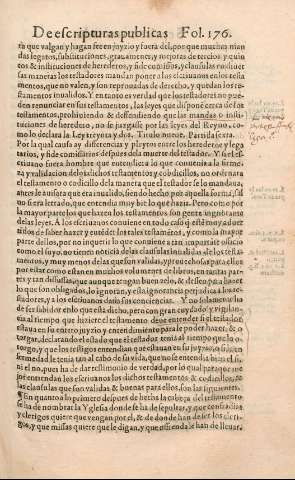 De escripturas publicas Fol. 176.
ra que valgan y hagan fee en juyzio y fuera del, por que muchas
das legatos, substituciones, grauamenes, y mejoras de tercios y quin
tos & instituciones de herederos, y fidecomissos, y clausulas
sas maneras los testadores mandan poner a los escriuanos en los testa
mentos, que no valen, y son reprouadas de derecho, y quedan los
testamentos inualidos. Y en
den renunciar en sus testamentos, las leyes que dispone cerca de
testamentos, prohibiendo & defendiendo que las mandas o insti-
tuciones de heredero, no se juzgasse por las leyes del Reyno, co
mo lo declara la Ley treynta y dos. Titulo nono. Partida sexta.
Por la qual causa ay differencias y pleytos entre herederos y lega
tarios, y fide comissarios despues dela muerte del testador. Y si el
criuano fuera hombre que entendiera lo que conuenia a la firme-
za y validacion delos dichos testamentos y cobdicilos, no ordenara
el testamento o codicilo dela manera que el testador se lo mandaua,
antes le auisara que era inualido, siendo hecho por aquella forma, si
no fuera letrado, que entendia muy bien lo que hazia. Pero como por
la mayor parte los que hazen los testamentos son gente ignorante
delas leyes. A los escriuanos conuiene en todo caso
dos de saber hazer y entender los tales testamentos, y como la mayor
parte dellos, por no inquirir lo que conuiene a tan importante officio
como el suyo, no tienen noticia delas clausulas inualidas de los testa-
mentos, y muy menos delas que son validas, y prouechosas para ellos
por estar como estan en muchos volumines de libros, en tantas par
tes y tan diffusas, que aunque tengan buen zelo, & desseo para hazer
lo que son obligados, lo ignoran, y esta ignorancia perjudica a los te
stadores, y a los escriuanos daña sus conciencias. Y no solamente ha
de ser sabidor en lo que esta dicho, pero con gran cuydado y vigilan
cia al tiempo que hiziere el testamento deue entender si el testador
estaua en su entero juyzio y entendimiento para le poder hazer, & o-
torgar, declarando el estado que el testador tenia al tiempo que lo o-
torgo, y que los testigos entendian que estaua en su juyzio, o si la en
fermedad le tenia tan al cabo de su vida, que no se entendia bien el si,
ni el no, pues ha de dar testimonio de verdad, por lo qual
jor entiendan los escriuanos los dichos testamentos & codicilos, &
las clausulas que son validas & buenas para ellos, son las siguientes.
¶ En quanto lo primero despues de hecha la cabeça del testamento
se ha de nombrar la Yglesia donde se ha de sepultar, y que confradias
y clerigos quiere que vengan por el, & de donde han de ser los cleri-
gos, y que missas quiere que le digan, y que offrenda le han de lleuar.